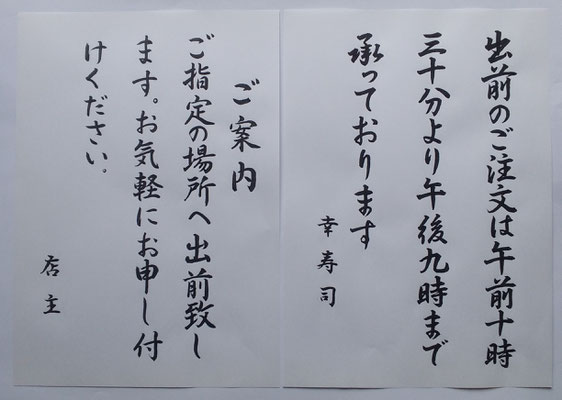 出前のご注文は午前十時
三十分より午後九時まで
承っております
幸寿司
ご案内
ご指定の場所へ出前致し
ます。お気軽にお申し付
けください。
店主